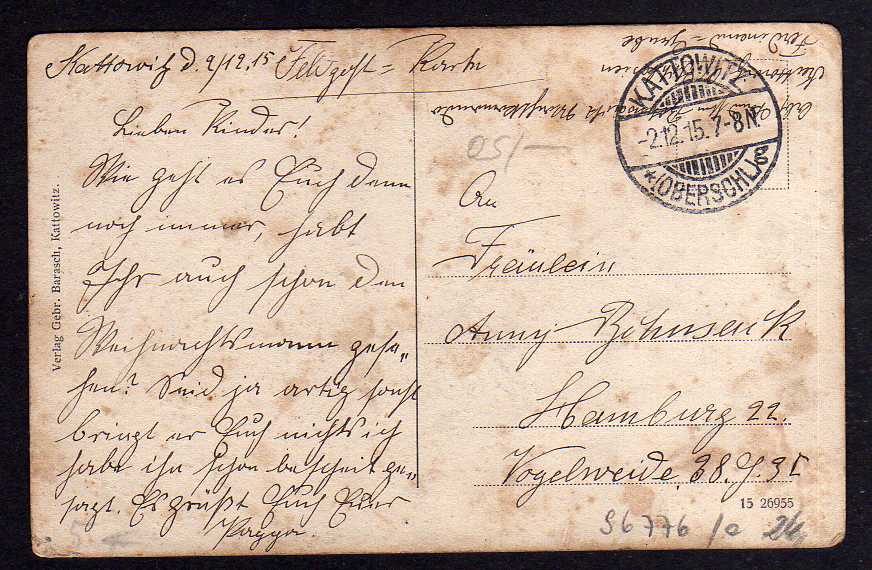 Kattowitz d. 2/12.15 Feldpost=Karte
Lieben Kinder!
Wie geht es Euch denn
noch immer, habt
Ihr auch schon den
Weihnachtsmann gese„
hen? Seid ja artig sonst
bringt er Euch nichts ich
habe ihn schon bescheit ge„
sagt. Es grüßt Euch Euer
Pappa.
Verlag Gebr. Barasch, Kattowitz.
Kattowitz
Ferdinand=Grube
KATTOWITZ
-2.12.15.7-8N.
*(OBERSCHL.)g
25/-
An
Fräulein
Anny Bohnsack
Hamburg 22.
Vogelweide 38. I
15 26955
S6776/a